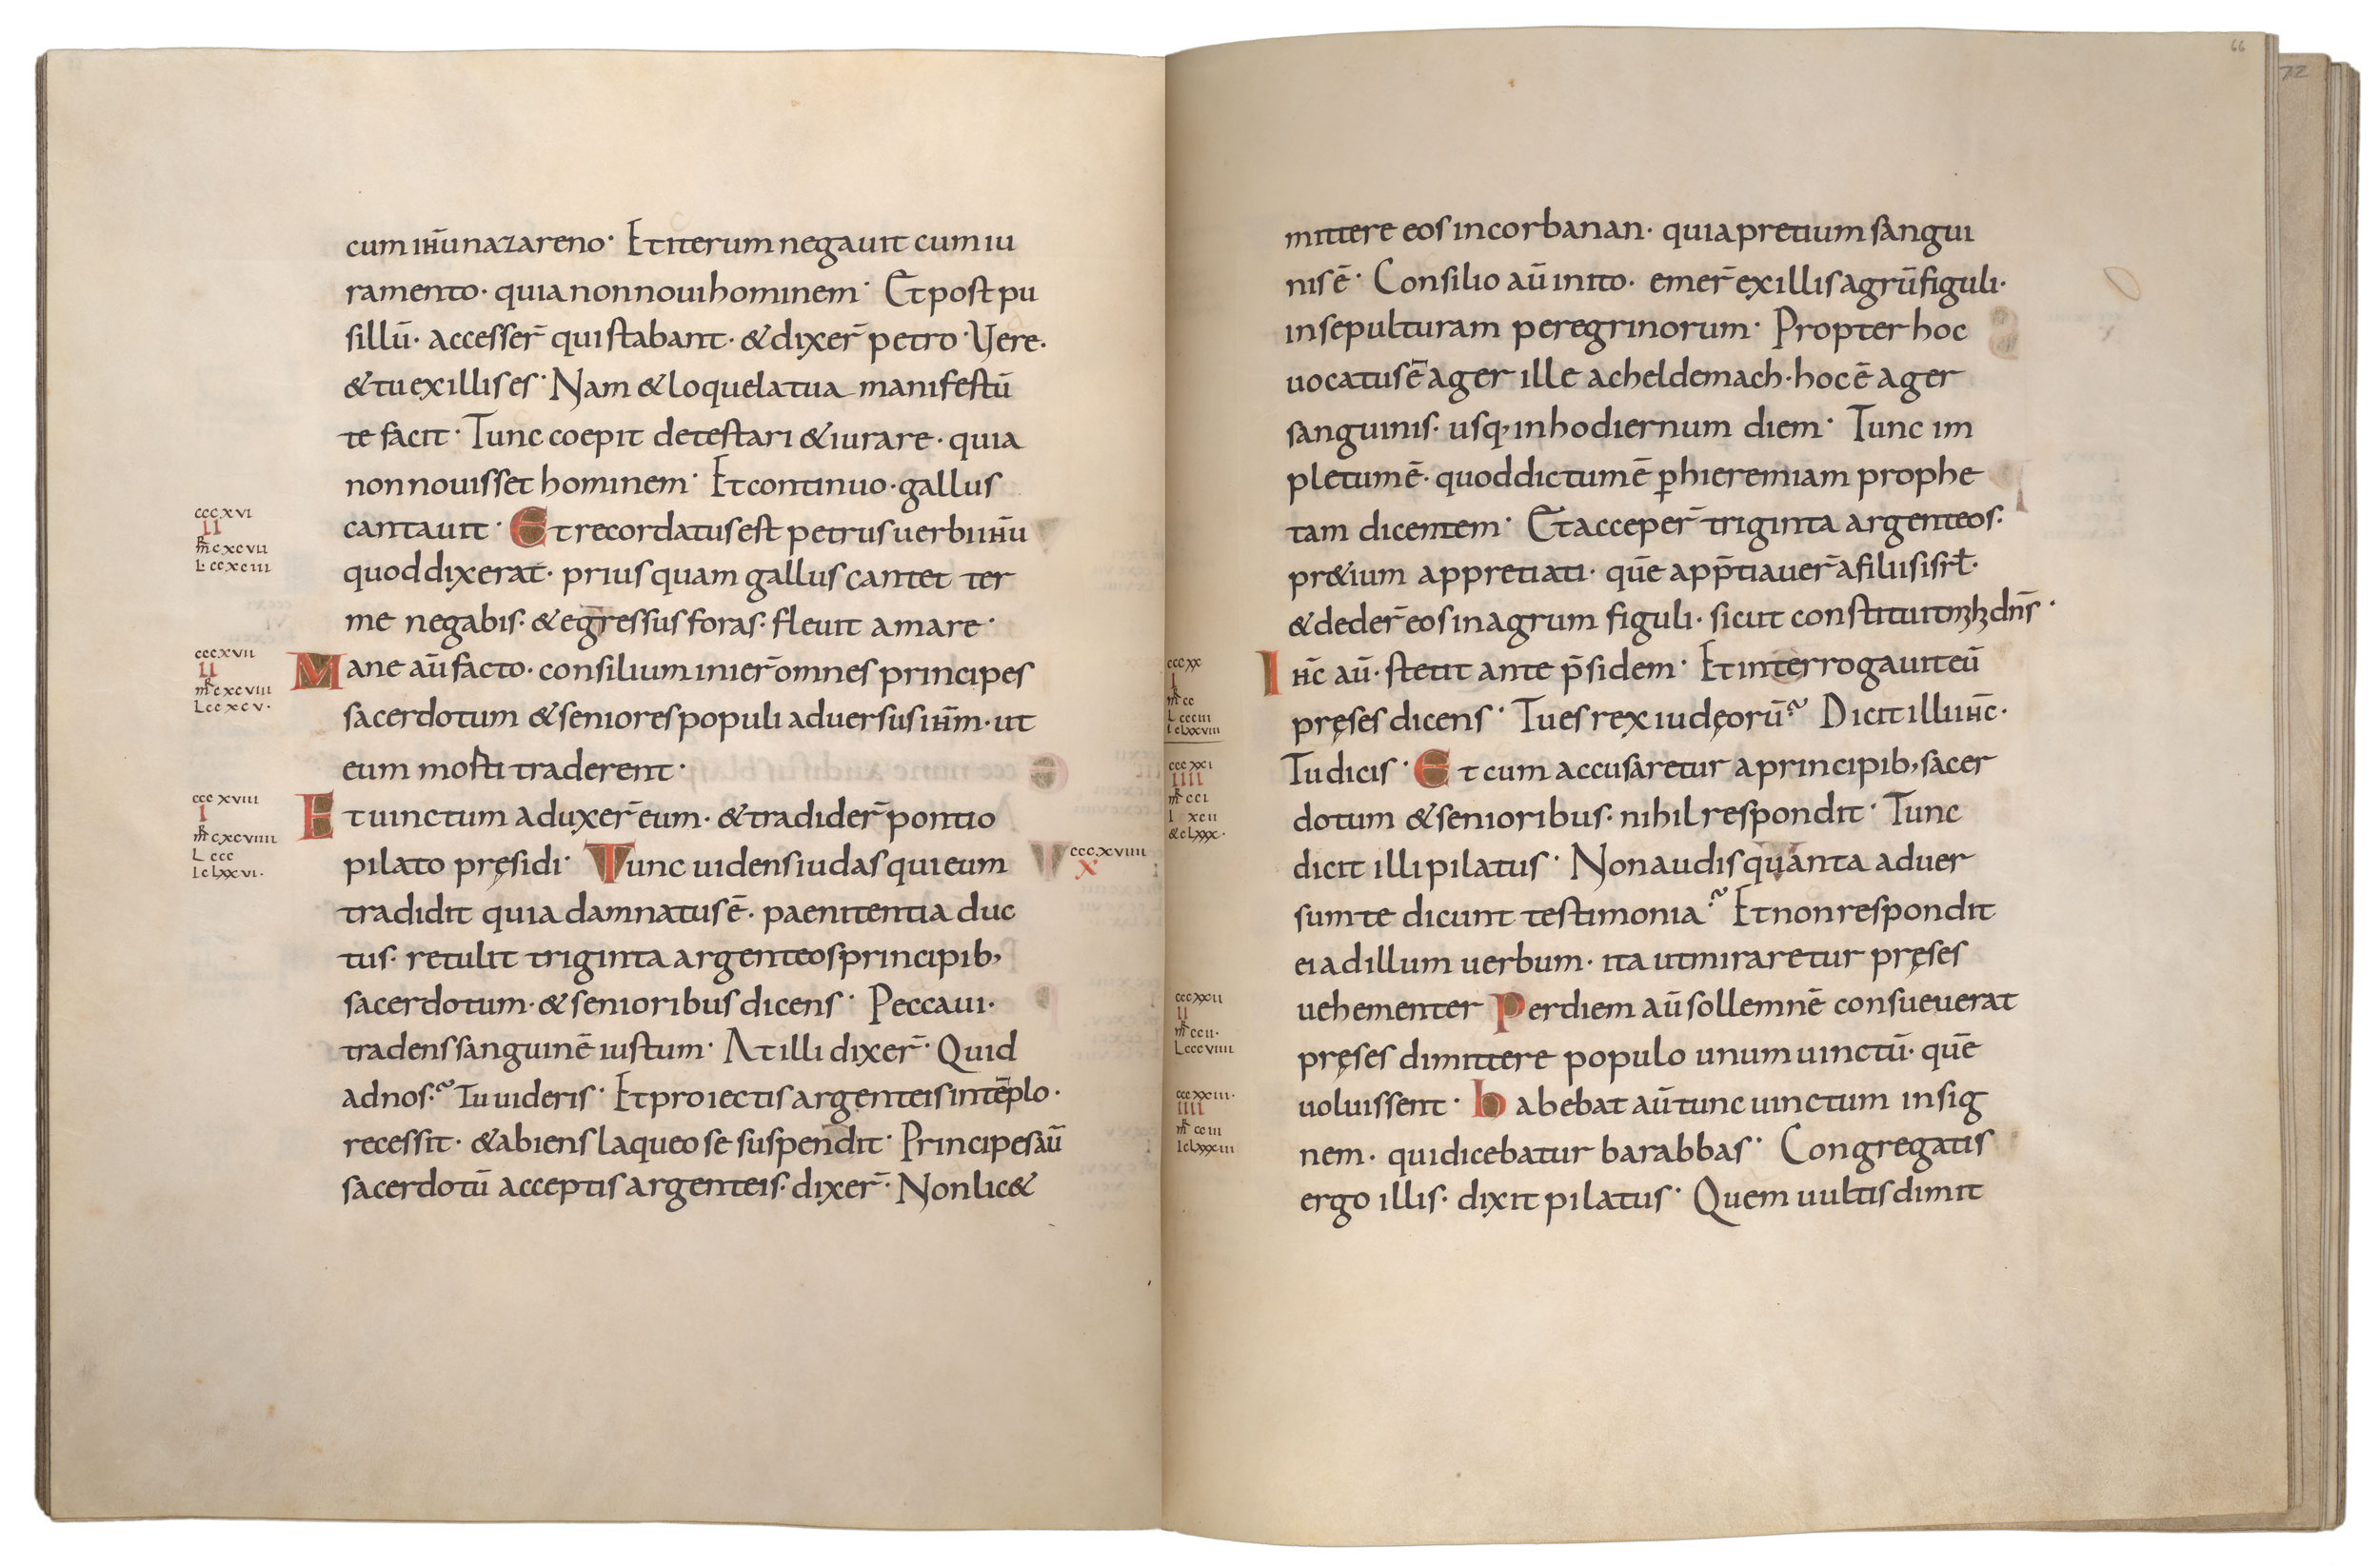 cum ih̄u nazareno· Et iterum negauit cum iu
ramento· quia non noui hominem· Et post pu
sillū· accesser̄ qui stabant· & dixer̄ petro· Vere·
& tu ex illis es· Nam & loquela tua manifestū
te facit· Tunc coepit detestari & iurare· quia
non nouisset hominem· Et continuo· gallus
cccxvi
II
mr̄ cxcvii
L· ccxciii
cantauit· Et recordatus est petrus uerbi ih̄u
quod dixerat· prius quam gallus cantet ter
me negabis· & egressus foras· fleuit amare·
cccxvii
II
mr̄ cxcviii
L ccxcv·
Mane aū facto· consilium inier̄ omnes principes
sacerdotum & seniores populi aduersus ih̄m· ut
eum morti traderent·
cccxviii
I
mr̄ cxcviiii
L ccc
Ic Lxxvi·
Et uinctum aduxer̄ eum· & tradider̄ pontio
pilato pręsidi· Tunc uidens iudas qui eum
cccxviiii
X
tradidit quia damnatus ē· paenitentia duc
tus· retulit triginta argenteos principib,
sacerdotum· & senioribus dicens· Peccaui·
tradens sanguinē iustum· At illi dixer̄· Quid
ad nos·? Tu uideris· Et proiectis argenteis in tēplo·
recessit· & abiens laqueo se suspendit· Principes aū
sacerdotū acceptis argenteis· dixer̄· Non lic&
66
72
mittere eos in corbanan· quia pretium sangui
nis ē· Consilio aū inito· emer̄ ex illis agrū figuli·
in sepulturam peregrinorum· Propter hoc
uocatus ē ager ille acheldemach· hoc ē ager
sanguinis· usq, in hodiernum diem· Tunc im
pletum ē· quod dictum ē ꝑ hieremiam prophe
tam dicentem· Et acceper̄ triginta argenteos·
pr&ium appretiati· quē app̄tiauer̄ a filiis isrł·
& deder̄ eos in agrum figuli· sicut constituit m̄ dn̄s·
cccxx
I
mr̄ cc
L cccııı
Ic Lxxviii
Ih̄c aū· stetit ante p̄sidem· Et interrogauit eū
pręses dicens· Tu es rex iudęorū? Dicit illi ih̄c·
cccxxi
IIII
mr̄ cci
I xcii
&c Lxxx·
Tu dicis· Et cum accusaretur a principib, sacer
dotum & senioribus· nihil respondit· Tunc
dicit illi pilatus· Non audis quanta aduer
sum te dicunt testimonia? Et non respondit
ei ad illum uerbum· ita ut miraretur pręses
cccxxii
II
mr̄ ccii·
L cccviiii
uehementer Per diem aū sollemnē consueuerat
pręses dimittere populo unum uinctū· quē
cccxxiii·
IIII
mr̄ cciii
Ic Lxxxiii
uoluissent· habebat aū tunc uinctum insig
nem· qui dicebatur barabbas· Congregatis
ergo illis· dixit pilatus· Quem uultis dimit